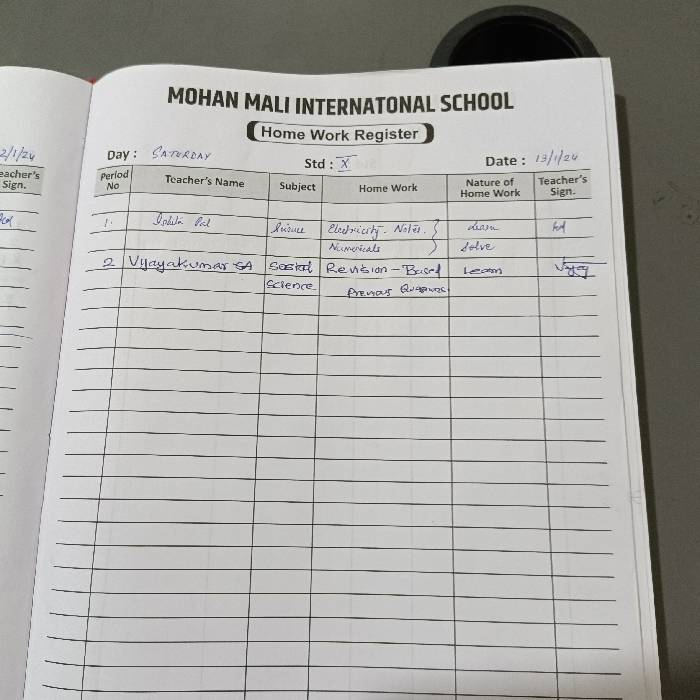 MOHAN MALI INTERNATONAL SCHOOL
Home Work Register
2/1/24
Day : SATURDAY Std : X Date : 13/1/24
eacher's Sign.
Period No Teacher's Name Subject Home Work Nature of Home Work Teacher's Sign.
1. Pal Science Electricity. Notes. } Learn
Numericals } Solve
2 Vijayakumar SA Social Revision - Based Learn
Science Previous